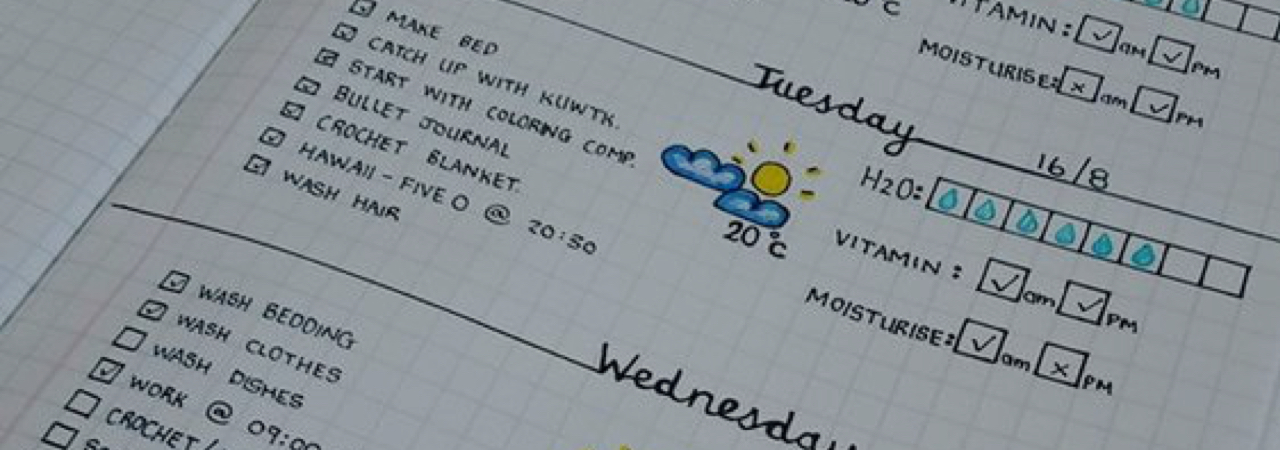 °C
VITAMIN: am PM
MOISTURISE: am PM
Tuesday
16/8
MAKE BED
CATCH UP WITH KUWTK.
START WITH COLORING COMP.
BULLET JOURNAL
CROCHET BLANKET.
HAWAII - FIVE O @ 20:50
WASH HAIR
20°C
H2O:
VITAMIN: am PM
MOISTURISE: am PM
Wednesday
WASH BEDDING
WASH CLOTHES
WASH DISHES
WORK @ 09:00
CROCHET/